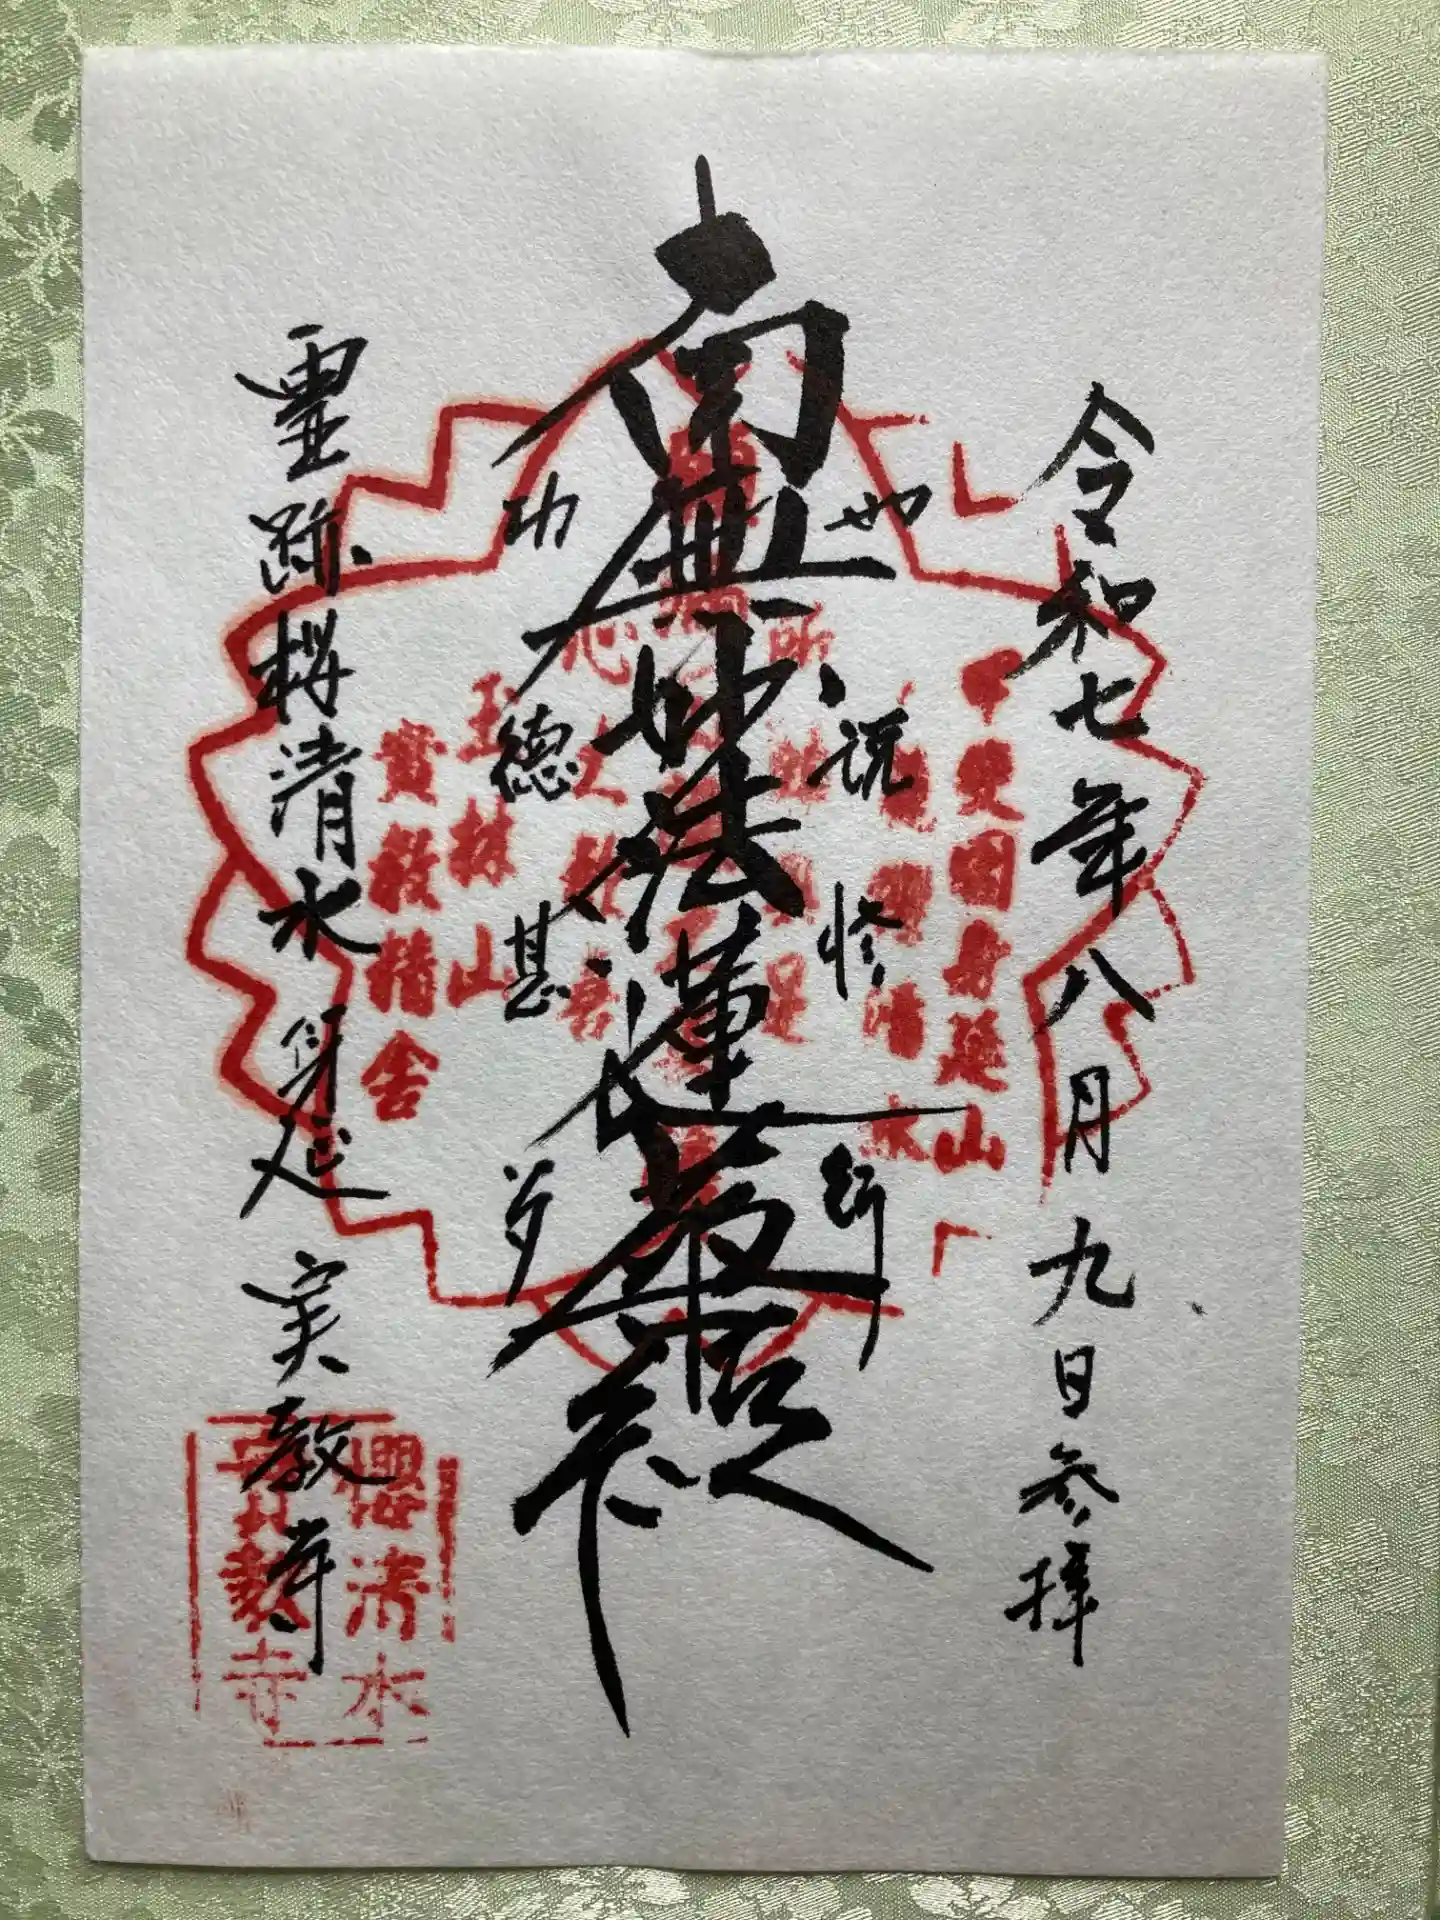 令和七年八月九日参拝
如説修行
南無妙法蓮華経
功徳甚多
霊跡桜清水 身延 実教寺
甲斐國身延山
櫻清水
玉林山
實教精舎
櫻清水
實教寺